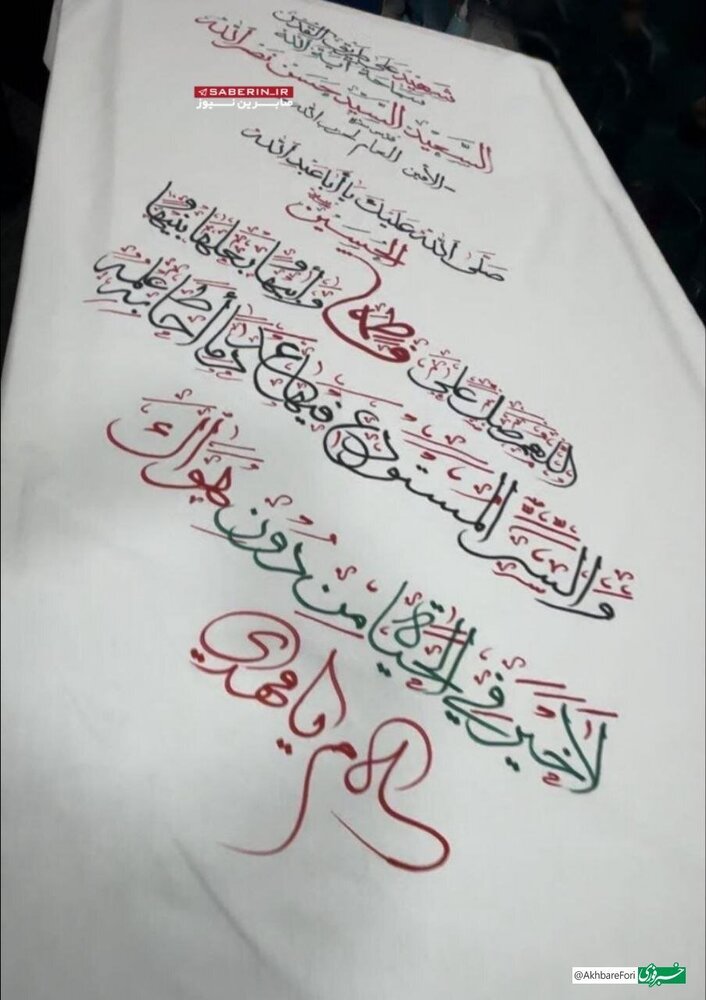 شهيد على طريق القدس
سماحة آية الله
السعيد السيد حسن نصرالله
SABERIN_IR
صابرین نیوز
الأمين العام لحزب الله
صَلَى اللهُ عَلَيْكَ يا أبا عبد الله
الحسين
اللهم صل على فاطمة وأبيها وبعلها وبنيها
والسر المستودع فيها عدد ما أحاط به علمك
لا خير في الحياة من دون هواك
سلام يا مهدي
@AkhbareFori
خبرفوری